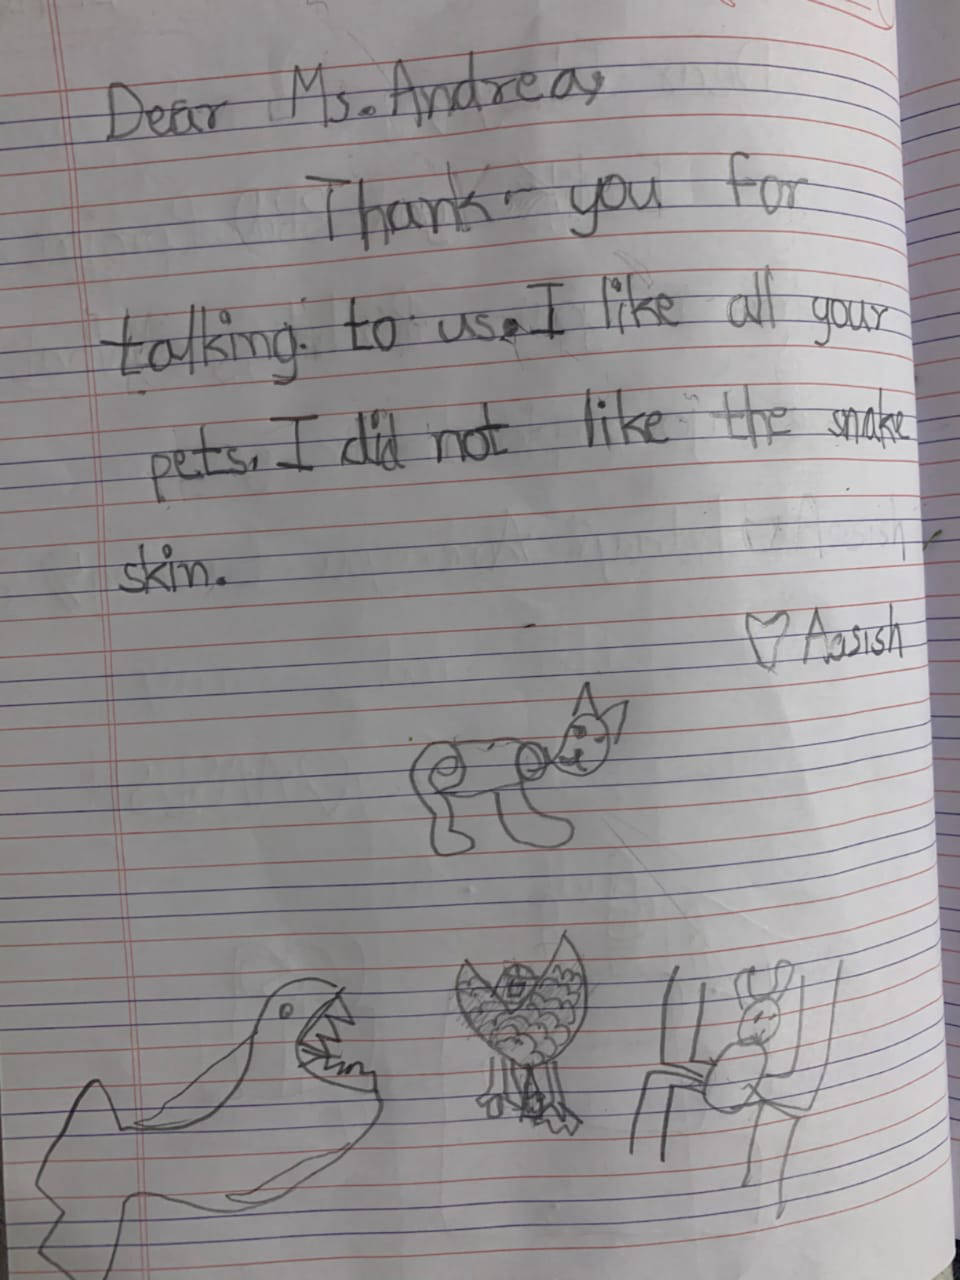 Dear Ms. Andrea,
Thank you for
talking. to us. I like all your
pets. I did not like the snake
skin.
♡ Aasish